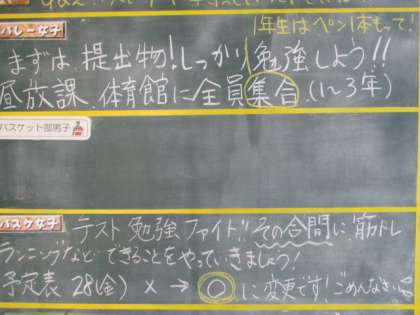 バレー女子
1年生はペン1本もって、
まずは、提出物!しっかり勉強しよう!!
昼放課、体育館に全員集合。(1〜3年)
バスケット部男子
バスケ女子
テスト勉強ファイト!!その合間に筋トレ
ランニングなどできることをやっていきましょう!
予定表 28(金) × → ○に変更です!ごめんなさい